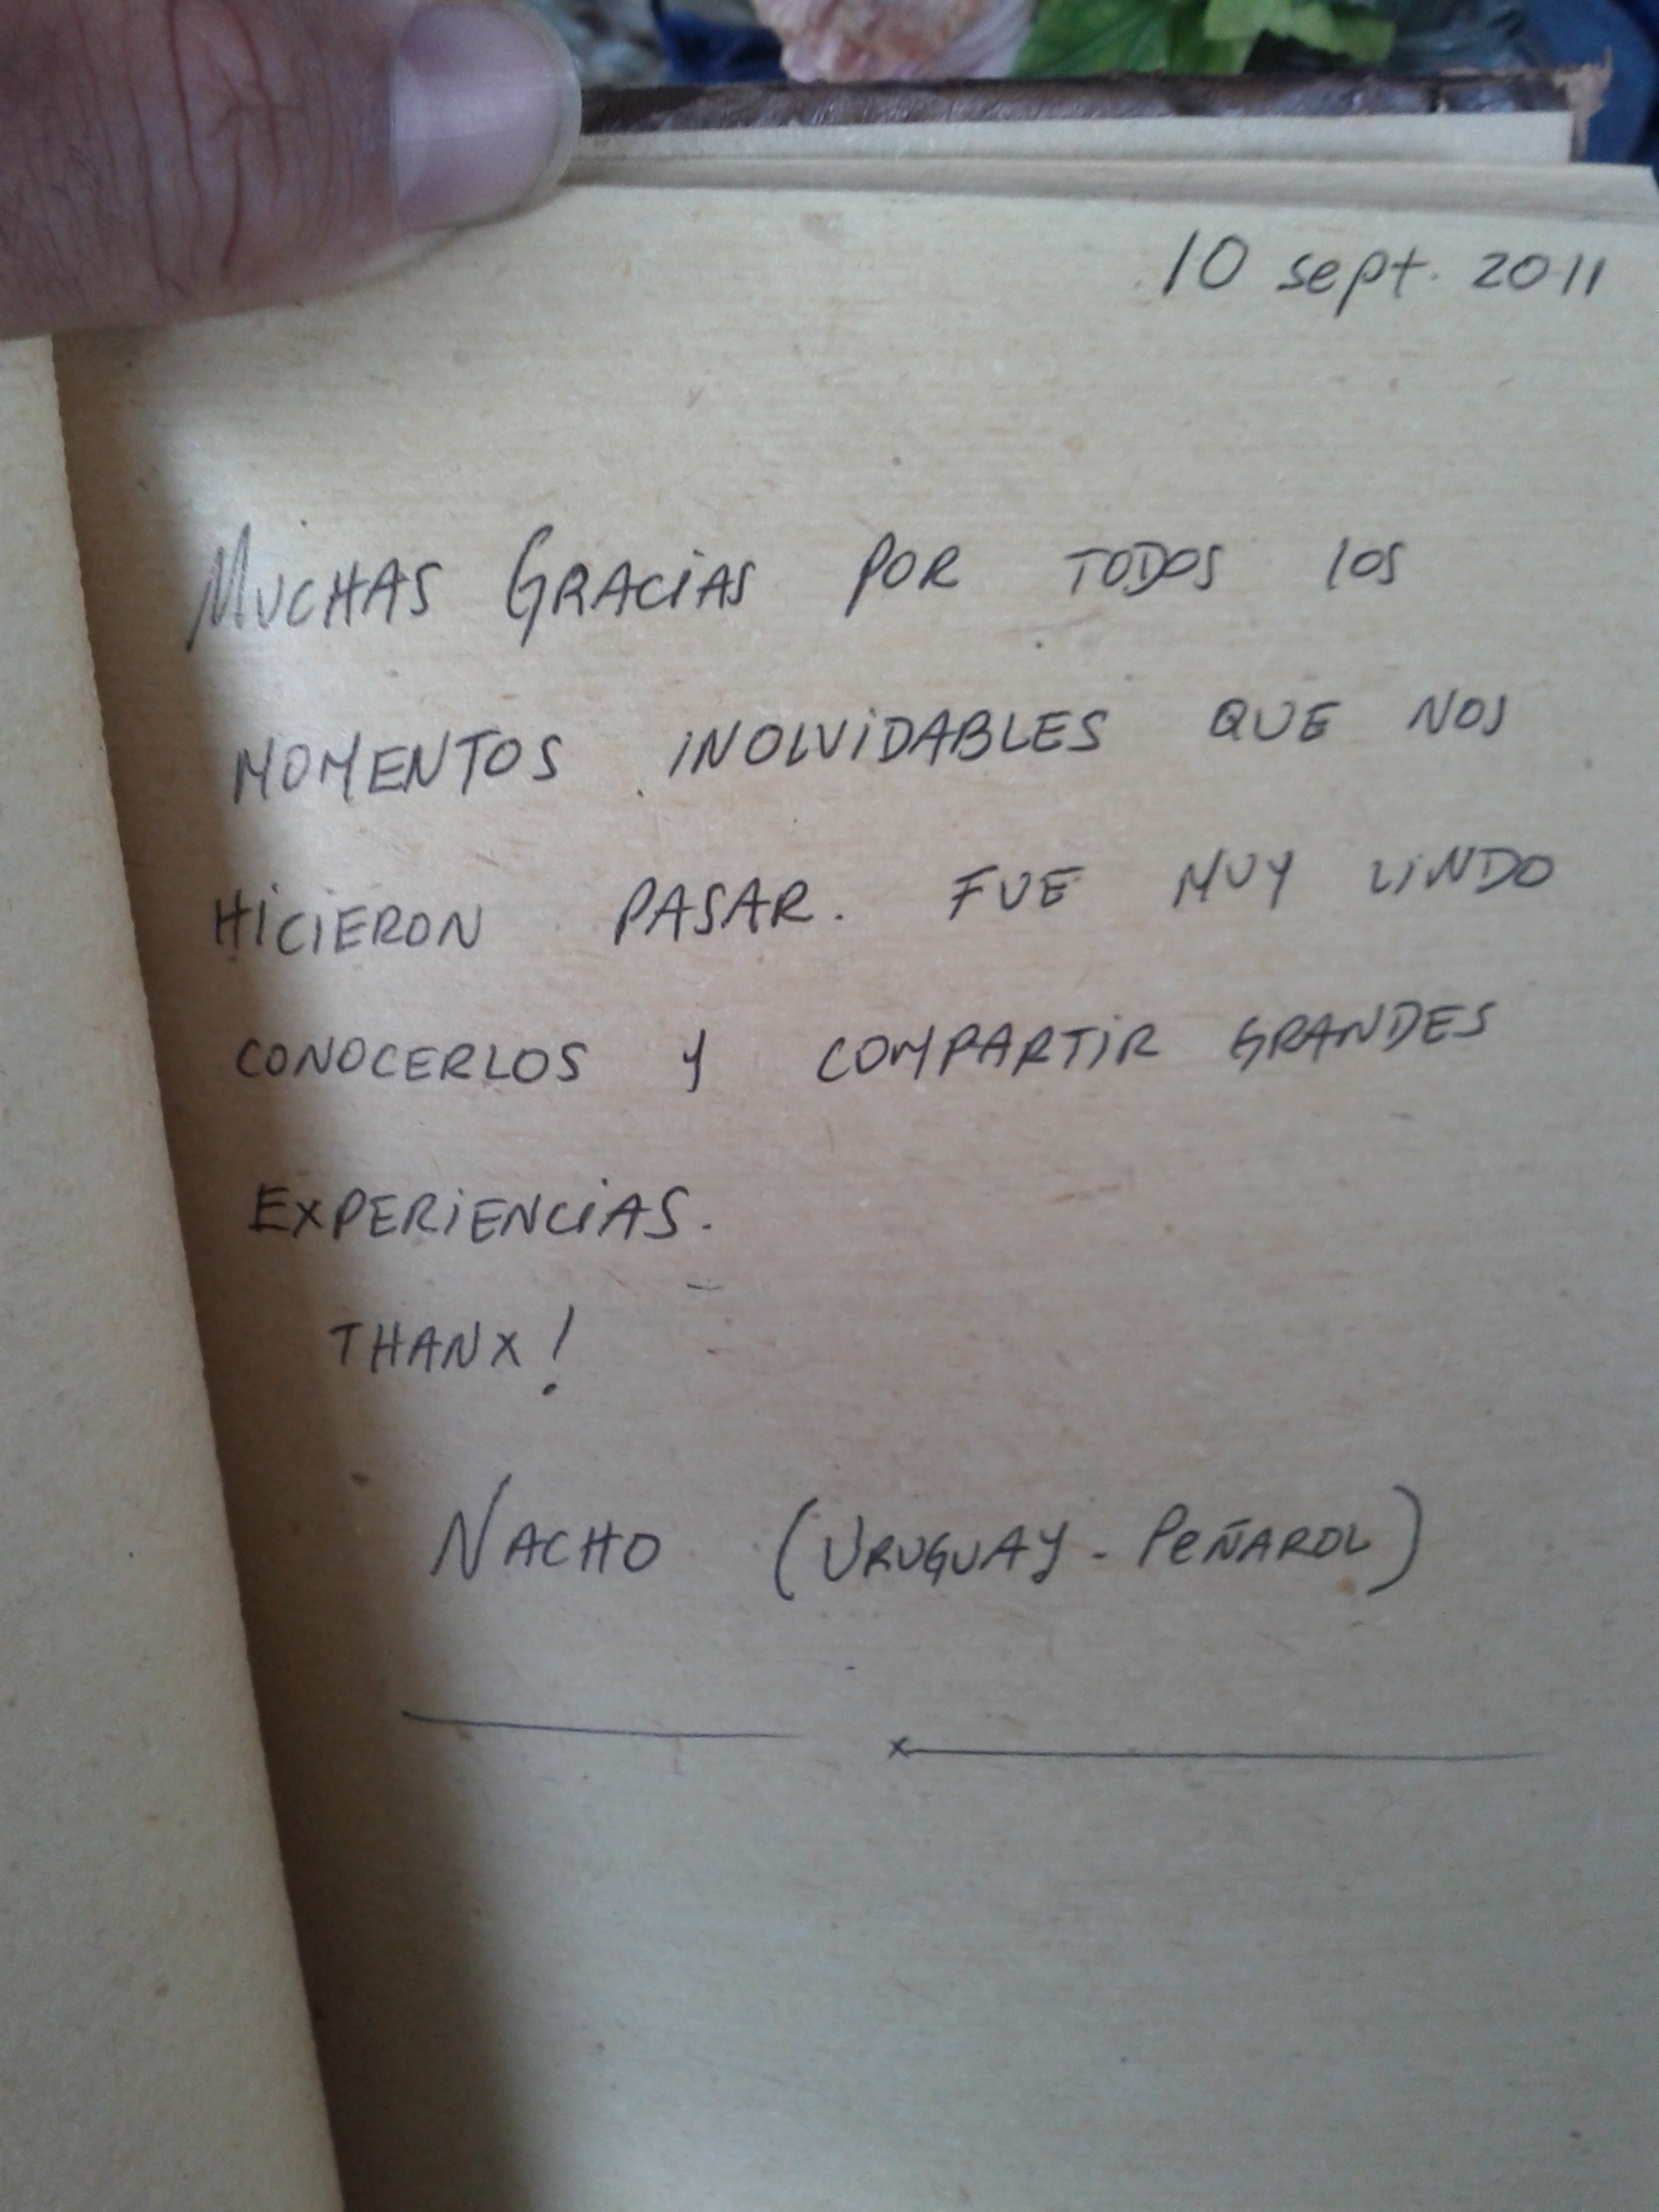 10 sept. 2011
MUCHAS GRACiAS POR TODOS LOS
MOMENTOS iNOLViDABLES QUE NOS
HiCiERON PASAR. FUE MUY LiNDO
CONOCERLOS Y COMPARTiR GRANDES
EXPERiENCiAS.
THANX!
NACHO (URUGUAY - PEÑAROL)